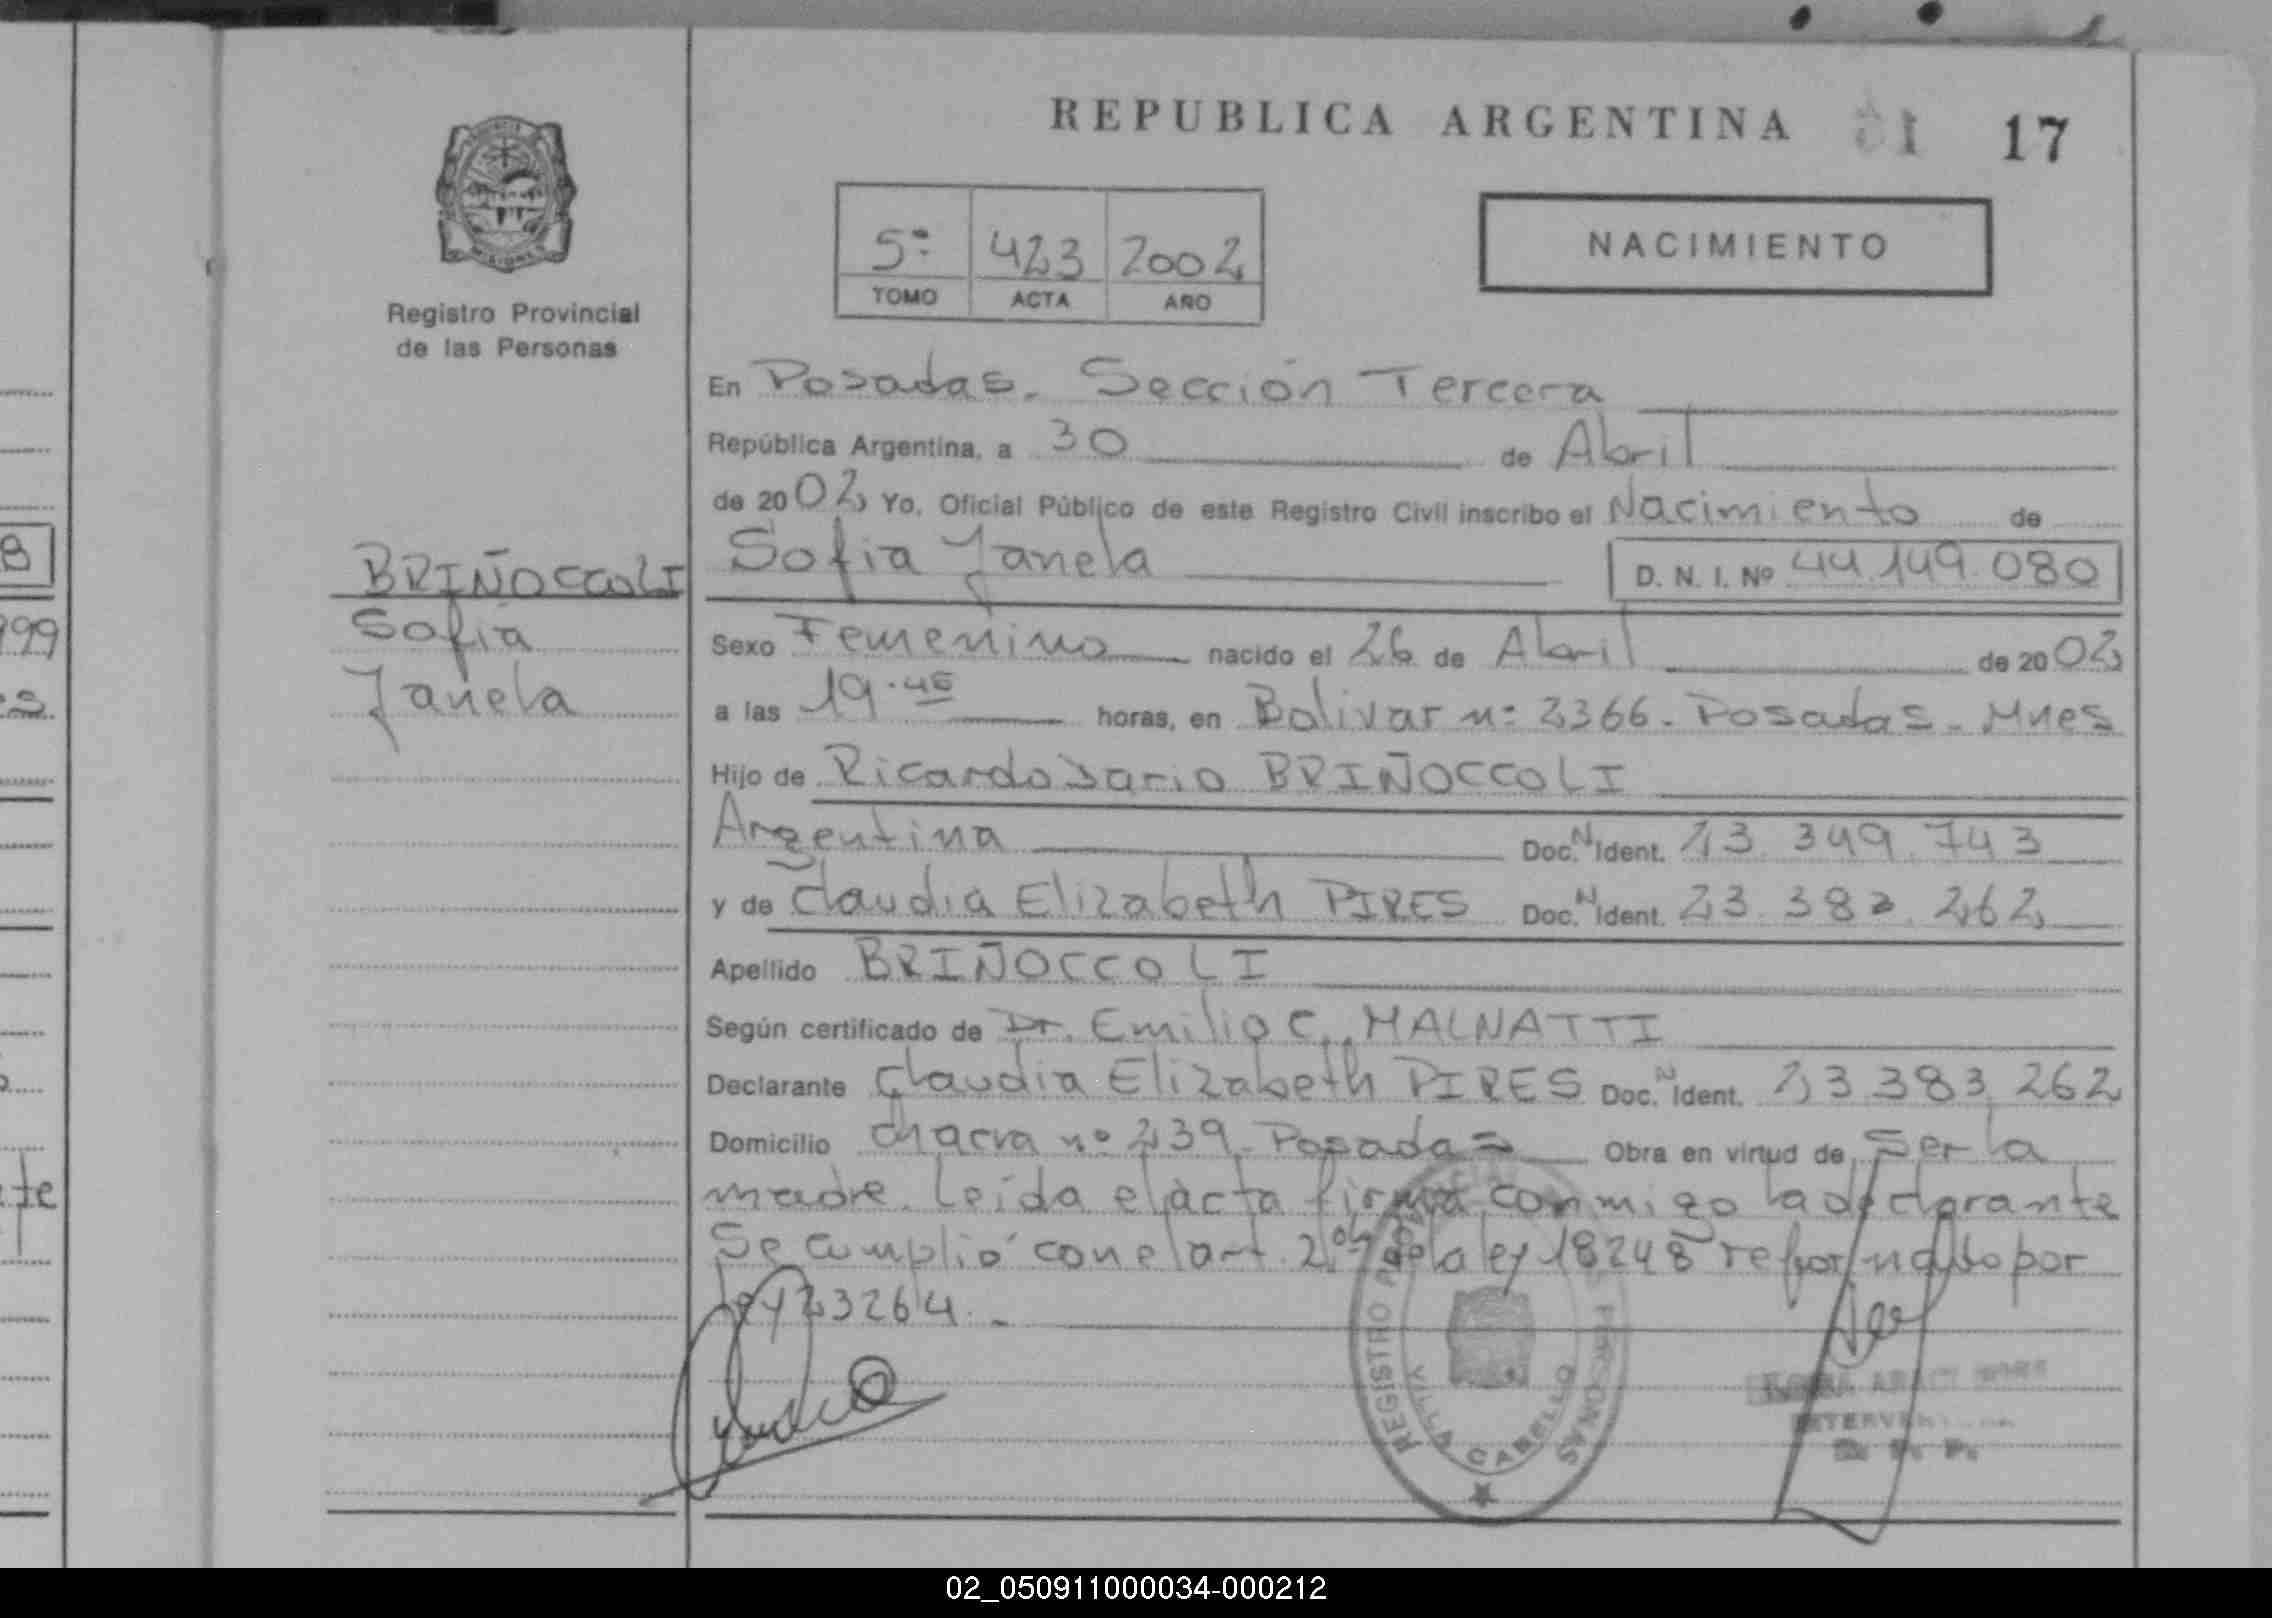 REPUBLICA ARGENTINA 17
Registro Provincial
de las Personas
5º 423 2002
TOMO ACTA AÑO
NACIMIENTO
En Posadas. Sección Tercera
República Argentina, a 30 de Abril
de 2002 Yo, Oficial Público de este Registro Civil inscribo el Nacimiento de
Sofia Janela D. N. I. Nº 44.149.080
BRIÑOCCOLI
Sofia
Janela
Sexo Femenino nacido el 26 de Abril de 2002
a las 19.45 horas, en Bolivar nº 2366. Posadas. Mnes
Hijo de Ricardo Dario BRIÑOCCOLI
Argentina Doc. N Ident. 23.349.743
y de Claudia Elizabeth PIRES Doc. N Ident. 23.383.262
Apellido BRIÑOCCOLI
Según certificado de Dr. Emilio C. MALNATTI
Declarante Claudia Elizabeth PIRES Doc. N Ident. 23.383.262
Domicilio chacra nº 239. Posadas Obra en virtud de Ser la
madre. Leída el acta firma conmigo la declarante
Se cumplió con el art. 2º de la ley 18248 reformado por
ley 23264.
REGISTRO PERSONAS
VILLA CABELLO
R. P. P.
8
999
es
te
02_050911000034-000212